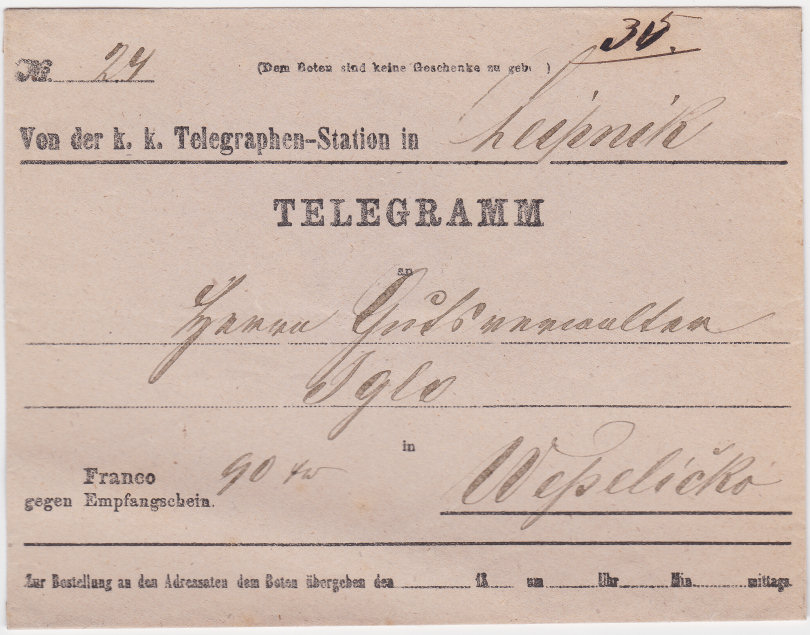 35.
Nr. 24 (Dem Boten sind keine Geschenke zu geb )
Von der k. k. Telegraphen-Station in Leipnik
TELEGRAMM
an
Herrn Gutsverwalter
Iglo
in
Franco 90 xr
gegen Empfangschein. Wesseličko
Zur Bestellung an den Adressaten dem Boten übergeben den 18 um Uhr Min. mittags.